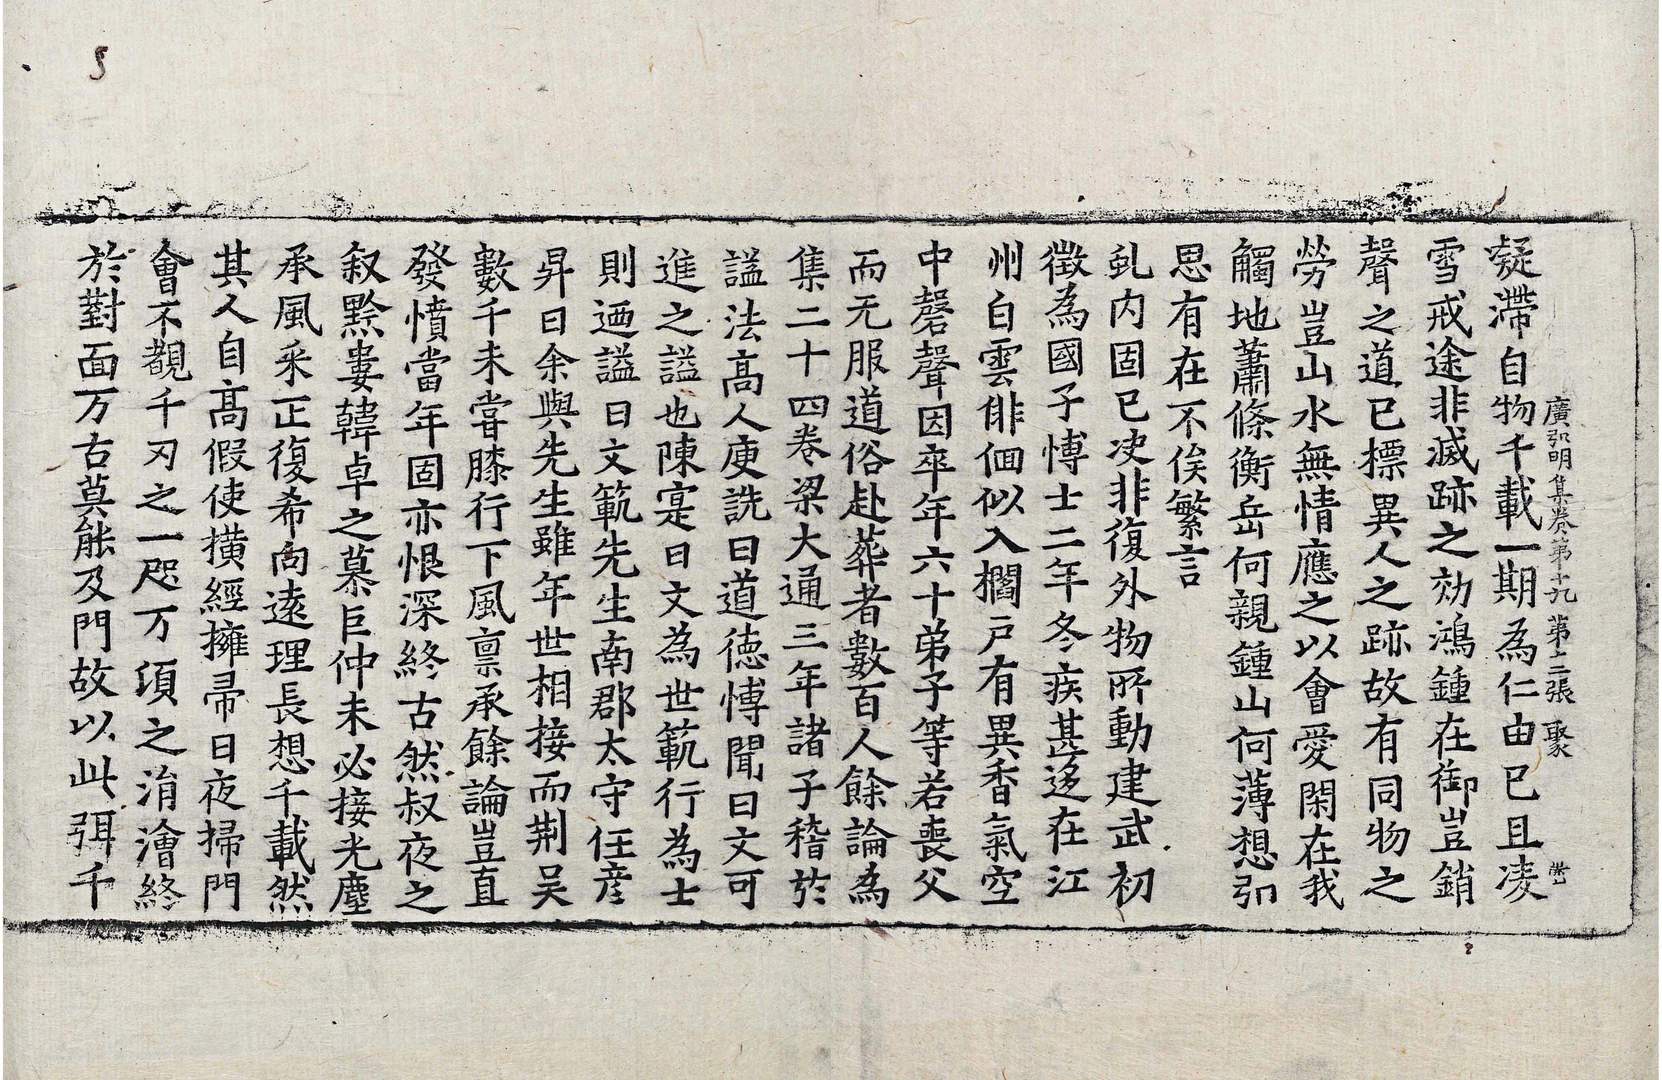 廣弘明集卷第十九 第十二張 聚
凝滯自物千載一期為仁由已且凌
雪戒途非滅跡之効鴻鍾在御豈銷
聲之道已標異人之跡故有同物之
勞豈山水無情應之以會愛閑在我
觸地蕭條衡岳何親鍾山何薄想弘
思有在不俟繁言
虬内固已决非復外物所動建武初
徵為國子博士二年冬疾甚迻在江
州白雲俳佪似入櫩户有異香氣空
中磬聲因卒年六十弟子等若喪父
而无服道俗赴葬者數百人餘論為
集二十四卷梁大通三年諸子稽於
謚法高人庾詵曰道德博聞曰文可
進之謚也陳寔曰文為世範行為士
則迺謚曰文範先生南郡太守任彦
昇曰余與先生雖年世相接而荆吴
數千未嘗膝行下風禀承餘論豈直
發憤當年固亦恨深終古然叔夜之
叙黔婁韓卓之慕巨仲未必接光塵
承風釆正復希向遠理長想千載然
其人自高假使横經擁帚日夜掃門
會不覩千刃之一咫万頃之涓澮終
於對面万古莫能及門故以此弭千